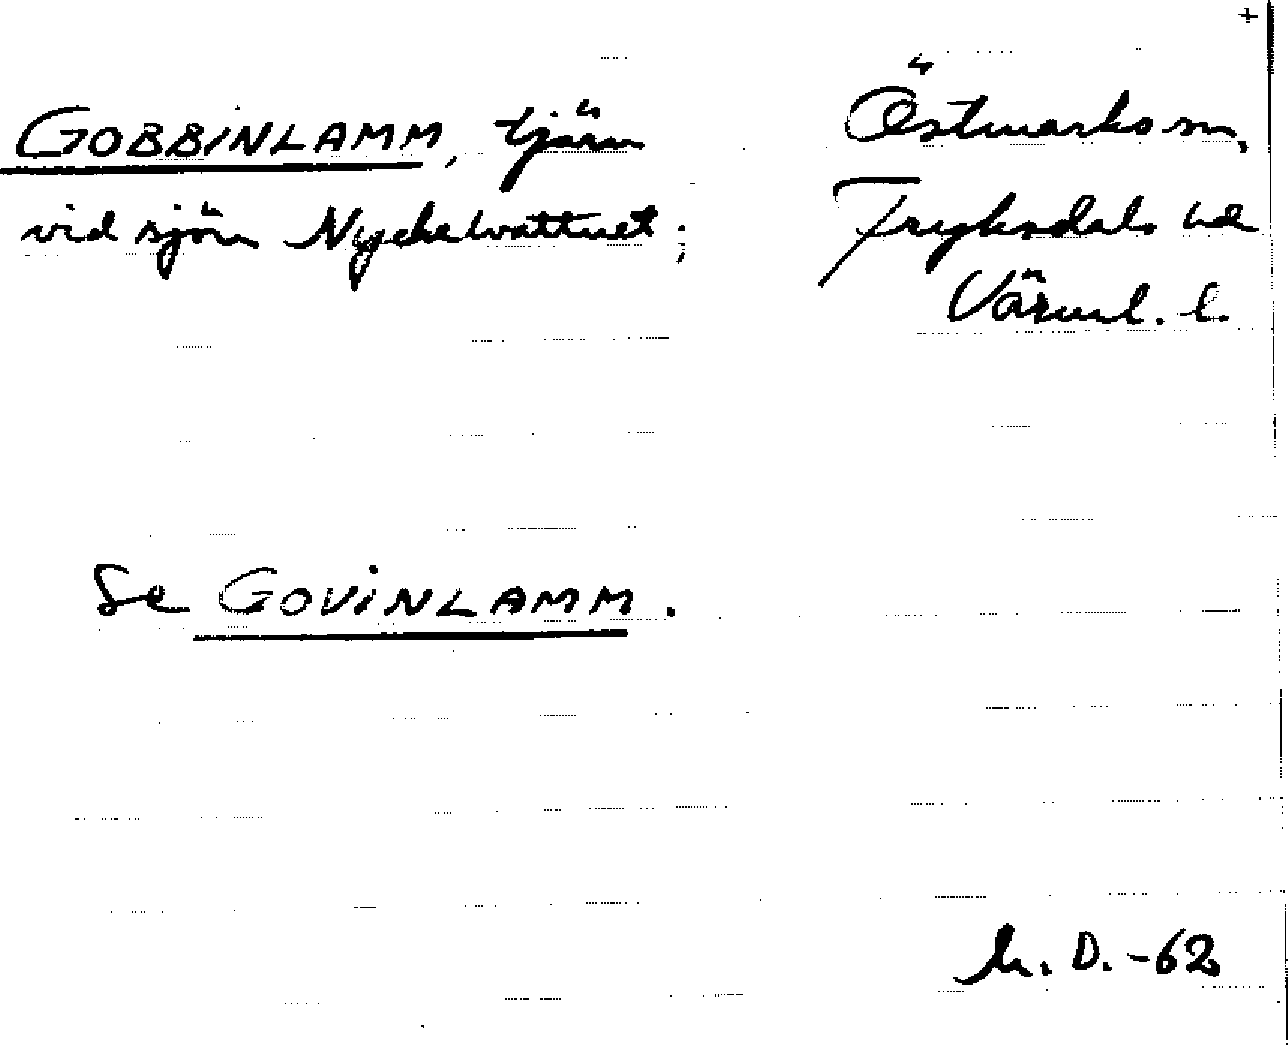 GOBBINLAMM, tjärn
vid sjön Nyckelvattnet;
Östmarks sn,
Fryksdals hd
Värml. l.
Se GOVINLAMM.
D. -62